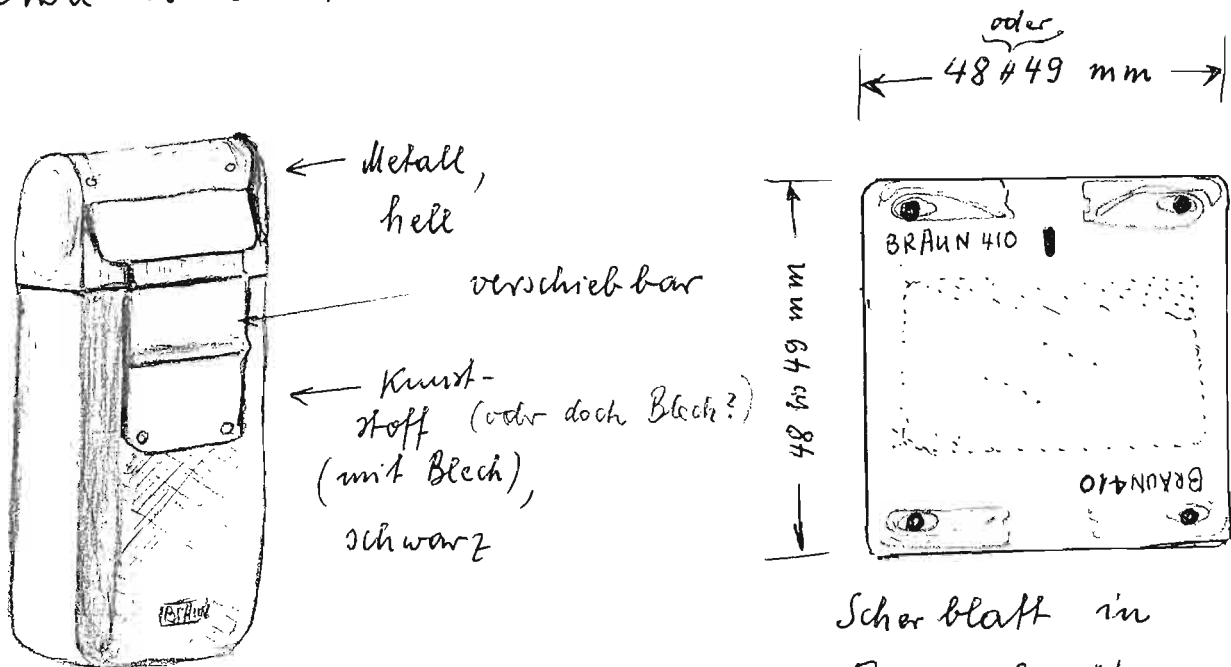 oder
48 # 49 mm
Metall,
hell
verschiebbar
Kunst-
stoff (oder doch Blech?)
(mit Blech),
schwarz
BRAUN
BRAUN 410
48 by 49 mm
BRAUN 410
Scherblatt in